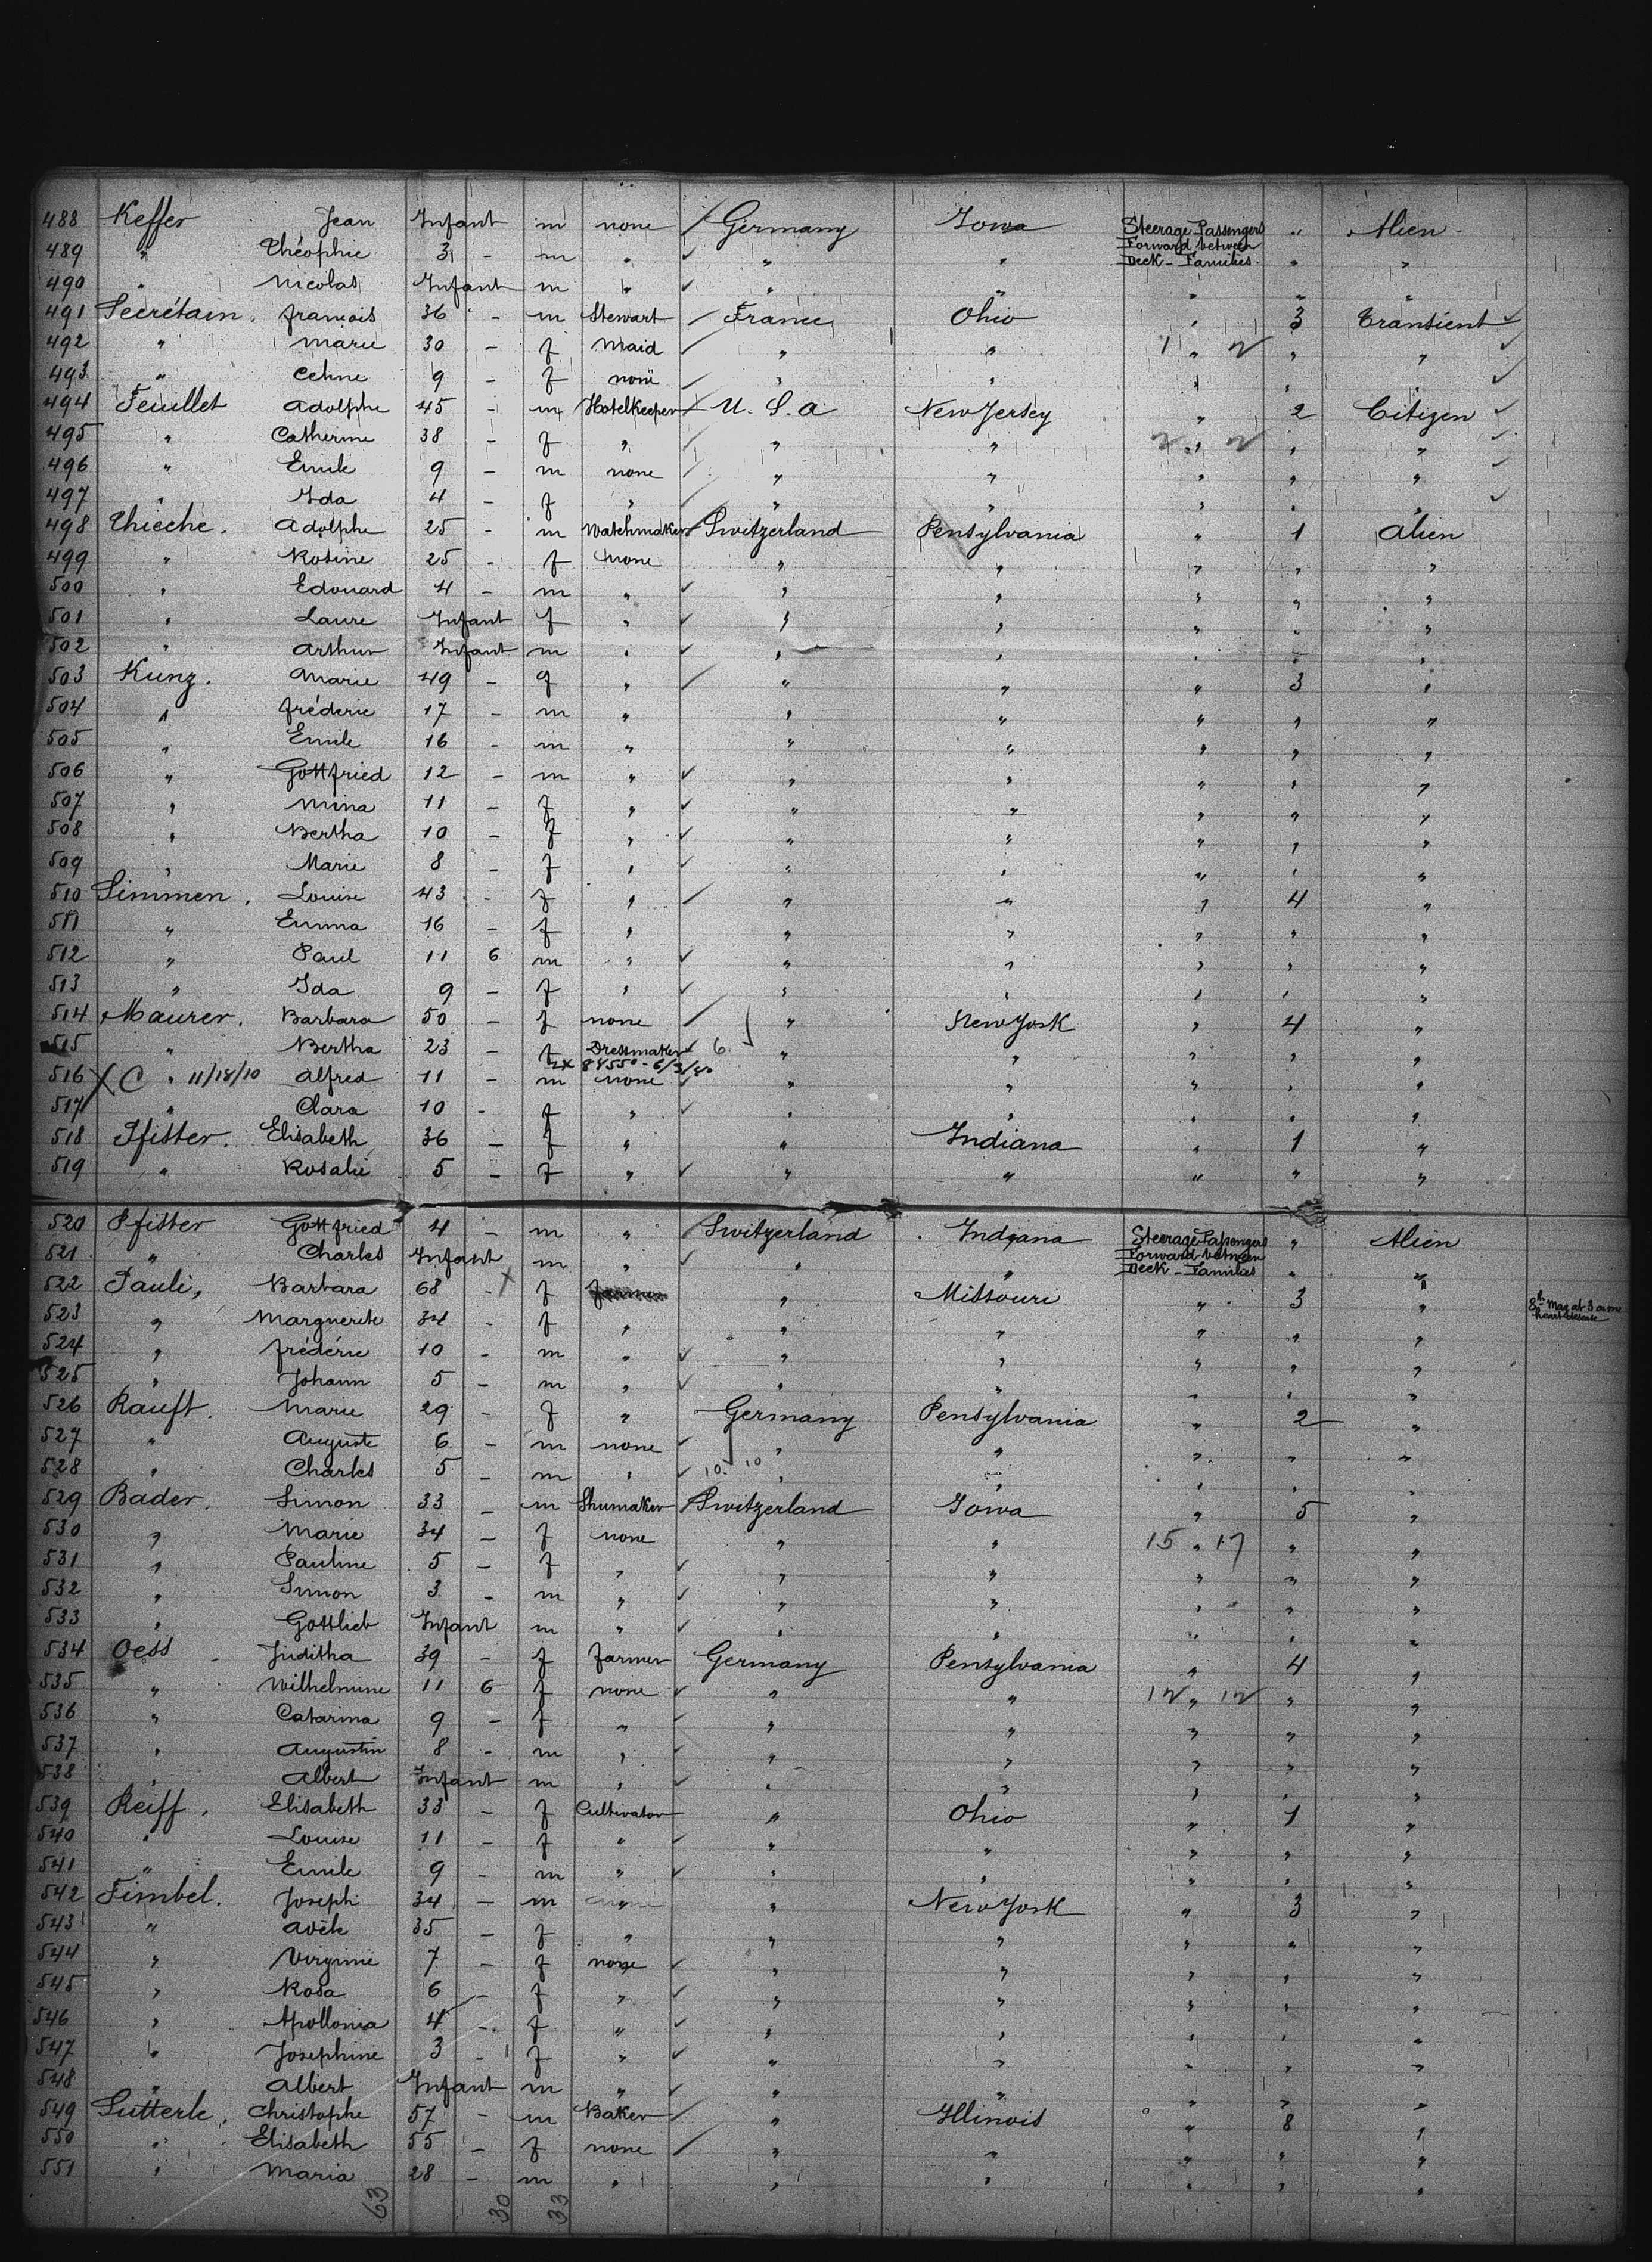 488 Keffer Jean Infant m none Germany Iowa Steerage Passengers Forward between Deck - Families " Alien
489 " Théophie 3 - m " " " " "
490 " Nicolas Infant m " " " " " "
491 Secrétain. François 36 - m Stewart France Ohio " 3 Transient
492 " Marie 30 - f Maid " " 1 " 2 " "
493 " Celine 9 - f none " " " " "
494 Feuillet Adolphe 45 - m Hotelkeeper U. S. A New Jersey " 2 Citizen
495 " Catherine 38 - f " " " 2 " 2 " "
496 " Emile 9 - m none " " " " "
497 " Ida 4 - f " " " " " "
498 Thieche. Adolphe 25 - m Watchmaker Switzerland Pensylvania " 1 Alien
499 " Rosine 25 - f none " " " " "
500 " Edouard 4 - m " " " " " "
501 " Laure Infant f " " " " " "
502 " Arthur Infant m " " " " " "
503 Kunz. Marie 49 - f " " " " 3 "
504 " Fréderic 17 - m " " " " " "
505 " Emile 16 - m " " " " " "
506 " Gottfried 12 - m " " " " " "
507 " Mina 11 - f " " " " " "
508 " Bertha 10 - f " " " " " "
509 " Marie 8 - f " " " " " "
510 Simmen. Louise 43 - f " " " " 4 "
511 " Emma 16 - f " " " " " "
512 " Paul 11 6 m " " " " " "
513 " Ida 9 - f " " " " " "
514 Maurer. Barbara 50 - f none " New York " 4 "
515 " Bertha 23 - f Dressmaker 6. " " " " "
2x 84550 - 6/3/40
516 X C " 11/18/10 Alfred 11 - m none " " " " "
517 " Clara 10 - f " " " " " "
518 Pfister. Elisabeth 36 - f " " Indiana " 1 "
519 " Rosalie 5 - f " " " " " "
520 Pfister Gottfried 4 - m " Switzerland Indiana Steerage Passengers Forward between Deck - Families " Alien
521 " Charles Infant m " " " " "
522 Pauli, Barbara 68 - X f " Missouri " 3 " 8th May at 3 a.m heart disease
523 " Marguerite 34 - f " " " " " "
524 " Fréderic 10 - m " " " " " "
525 " Johann 5 - m " " " " " "
526 Rauft. Marie 29 - f " Germany Pensylvania " 2 "
527 " Auguste 6 - m none " " " " "
528 " Charles 5 - m " 10. 10 " " " " "
529 Bader. Simon 33 - m Shumaker Switzerland Iowa " 5 "
530 " Marie 34 - f none " " 15 " 17 " "
531 " Pauline 5 - f " " " " " "
532 " Simon 3 - m " " " " " "
533 " Gottlieb Infant m " " " " " "
534 Oess Juditha 39 - f farmer Germany Pensylvania " 4 "
535 " Wilhelmine 11 6 f none " " 12 " 12 " "
536 " Catarina 9 - f " " " " " "
537 " Augustin 8 - m " " " " " "
538 " Albert Infant m " " " " " "
539 Reiff. Elisabeth 33 - f Cultivator " Ohio " 1 "
540 " Louise 11 - f " " " " " "
541 " Emile 9 - m " " " " " "
542 Fimbel. Joseph 34 - m " " New York " 3 "
543 " Adèle 35 - f " " " " " "
544 " Virginie 7 - f none " " " " "
545 " Rosa 6 - f " " " " " "
546 " Apollonia 4 - f " " " " " "
547 " Josephine 3 - f " " " " " "
548 " Albert Infant m " " " " " "
549 Sutterle. Christophe 57 - m Baker " Illinois " 8 "
550 " Elisabeth 55 - f none " " " " "
551 " Maria 28 - m " " " " " "
63 30 33